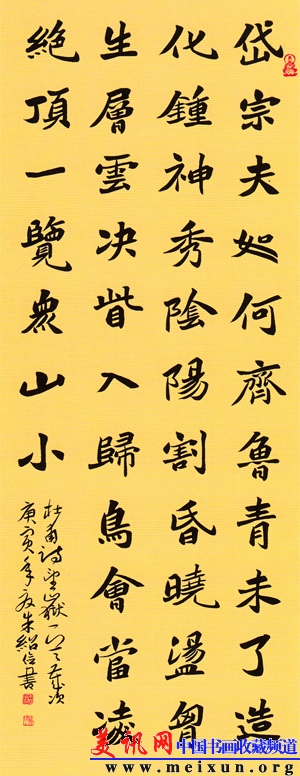 岱宗夫如何齊魯青未了造
化鍾神秀陰陽割昏曉盪胷
生層雲决眥入歸鳥會當凌
絶頂一覽衆山小
杜甫詩望嶽一首歲次
庚寅年夏朱紹信書
美讯网 中国书画收藏频道
www.meixun.org